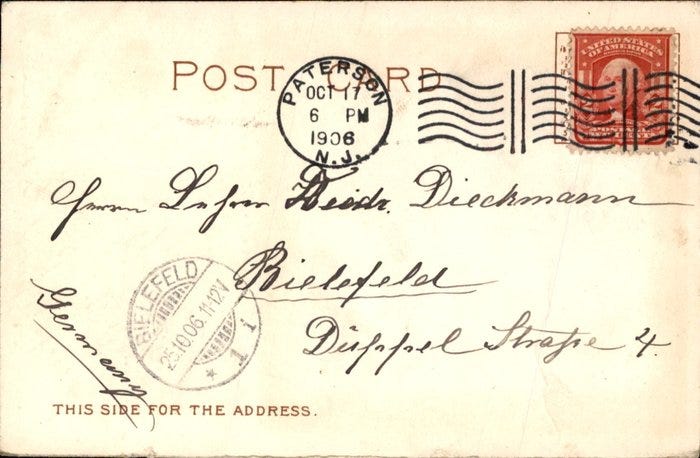 POST CARD
UNITED STATES
OF AMERICA
PATERSON
OCT 17
6 PM
1906
N.J.
Herrn Lehrer Heidr. Dieckmann
Bielefeld
Düppel Straße 4.
Germany
BIELEFELD
26.10.06.11-12V
* 1 i
THIS SIDE FOR THE ADDRESS.